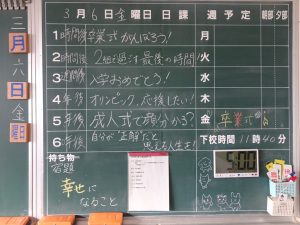 3月6日金曜日 日課
週予定
朝部 夕部
1日時間後 卒業式がんばろう!
2時間後 2組で過ごす最後の時間
3週間後 入学おめでとう!
4年後 オリンピック、応援したい!
5年後 成人式で顔分かる?
6年後 自分が"正解"だと
思える人生を!
月
火
水
木
金 卒業式
下校時間 11時40分
持ち物
宿題
幸せに
なること
三
月
六
日
金
曜